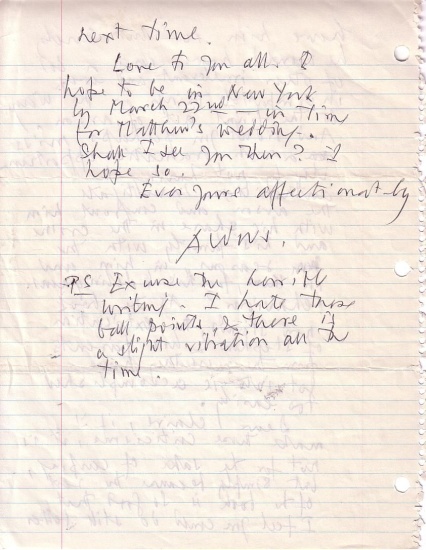 next time.
Love to you all. I
hope to be in New York
by March 22nd – in time
for Matthew's wedding.
Shall I see you then? I
hope so.
Ever yours affectionately
PS Excuse the horrible
writing. I hate these
ball points, & there is
a slight vibration all the
time.